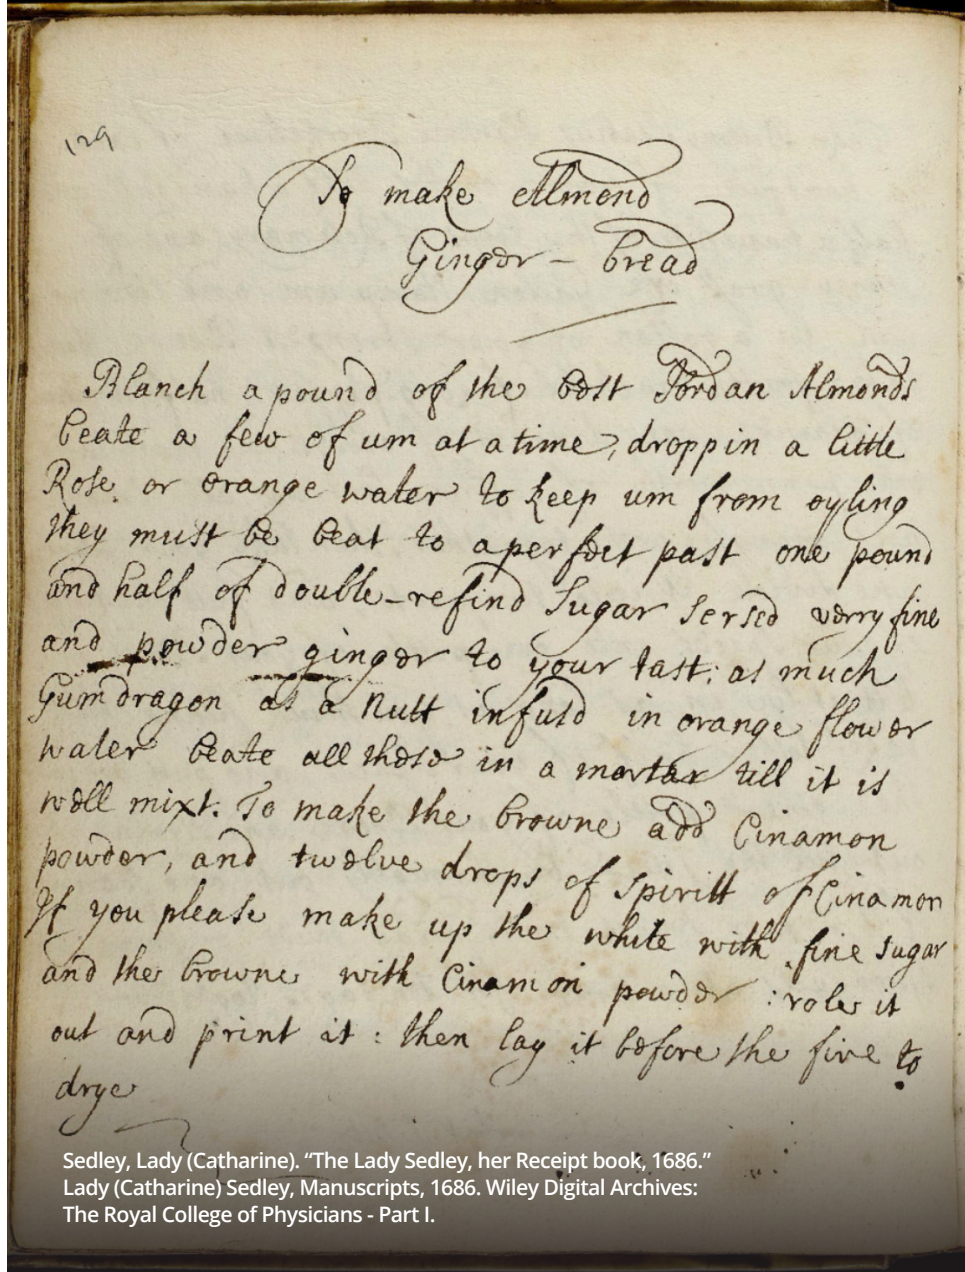 129
To make Almond
Ginger - bread
Blanch a pound of the best Jordan Almonds
beate a few of um at a time, droppin a little
Rose or orange water to keep um from oyling
they must be beat to a perfect past one pound
and half of double-refind Sugar sersed verry fine
and powder ginger to your tast: as much
Gumdragon as a Nutt infusd in orange flower
water beate all these in a mortar till it is
well mixt. To make the browne add Cinamon
powder, and twelve drops of spiritt of Cinamon
If you please make up the white with fine sugar
and the browne with Cinamon powder : role it
out and print it : then lay it before the fire to
drye
Sedley, Lady (Catharine). “The Lady Sedley, her Receipt book, 1686.”
Lady (Catharine) Sedley, Manuscripts, 1686. Wiley Digital Archives:
The Royal College of Physicians - Part I.